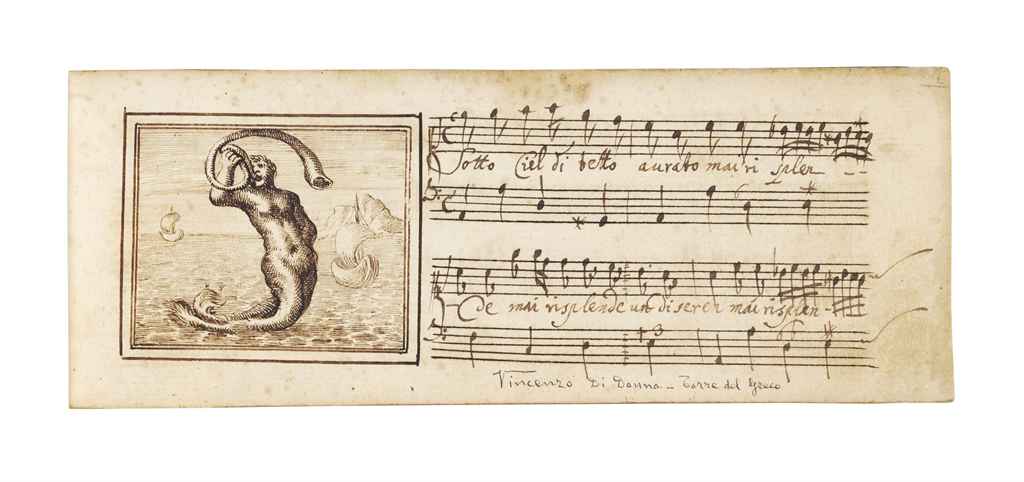 Sotto Ciel di betto aurato mai ri splen - -
De mai risplende un di seren mai risplen -
Vincenzo Di Donna - Torre del Greco